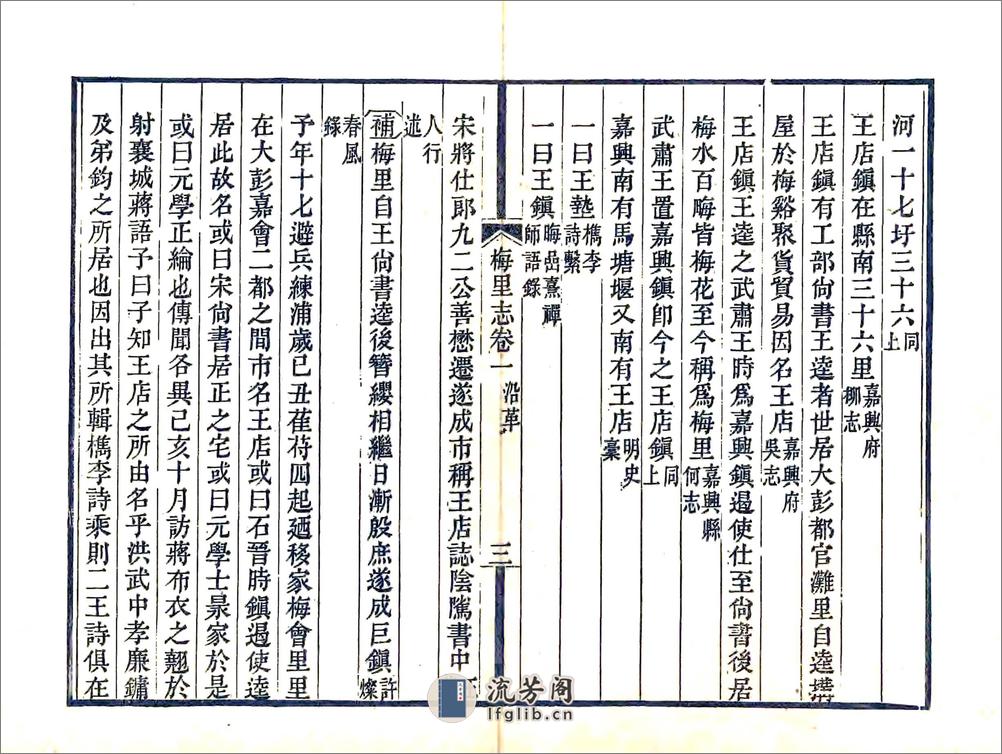 河一十七圩三十六同上
王店鎮在縣南三十六里嘉興府柳志
王店鎮有工部尚書王逵者世居大彭都官灘里自逵搆
屋於梅谿聚貨貿易因名王店嘉興府吳志
王店鎮王逵之武肅王時爲嘉興鎮遏使仕至尚書後居
梅水百畮皆梅花至今稱爲梅里嘉興縣何志
武肅王置嘉興鎮卽今之王店鎮同上
嘉興南有馬塘堰又南有王店明史稾
一曰王墊檇李詩繫
一曰王鎮晦嵒熹禪師語錄
梅里志卷一 沿革 三
宋將仕郎九二公善懋遷遂成市稱王店誌陰隲書中
人行述
補梅里自王尚書逵後簪纓相繼日漸殷庶遂成巨鎮許燦
春風錄
予年十七避兵練浦歲己丑萑苻四起廼移家梅會里里
在大彭嘉會二都之間市名王店或曰石晉時鎮遏使逵
居此故名或曰宋尚書居正之宅或曰元學士家於是
或曰元學正綸也傳聞各異己亥十月訪蔣布衣之翹於
射襄城蔣語予曰子知王店之所由名乎洪武中孝廉鏞
及弟鈞之所居也因出其所輯檇李詩乘則二王詩俱在
流芳阁
lfglib.cn